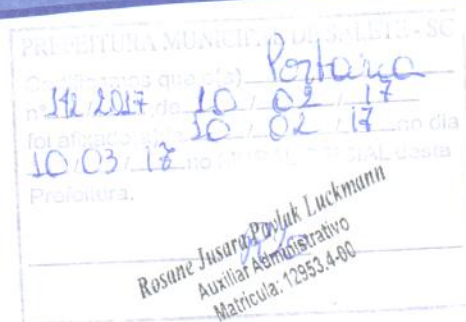 PREFEITURA MUNICIPAL DE SALETE - SC
Certificamos que o(a) Portaria
nº 2017 de 10 / 02 / 17
foi afixado 10 / 02 / 17 no dia
10 / 03 / 17 no MURAL OFICIAL desta
Prefeitura.
Rosane Jusara Pavlak Luckmann
Auxiliar Administrativo
Matrícula: 12953.4-00